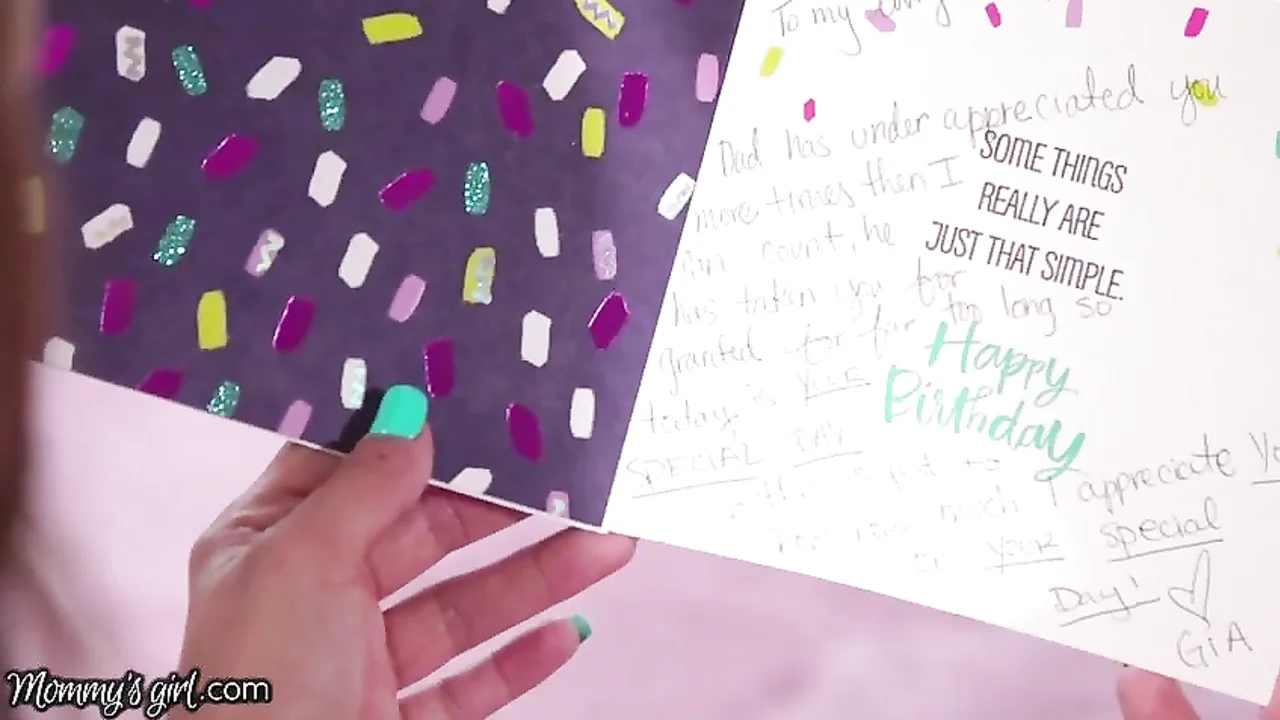 To my loving
Dad has under appreciated you
more times then I
can count, he
has taken you for
granted for far too long so
today is your
SPECIAL DAY
SOME THINGS
REALLY ARE
JUST THAT SIMPLE.
Happy
Birthday
much I appreciate
on your special
Day! ♡
GiA
Mommy's girl.com